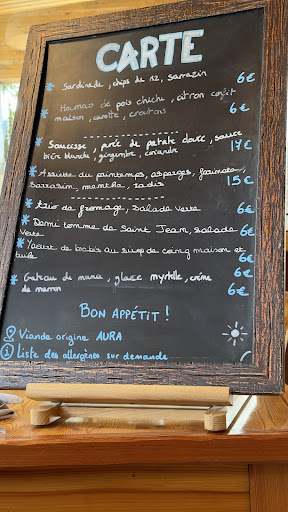 CARTE
Sardinade, chips de riz, sarrazin 6€
Houmous de pois chiche, citron confit
maison, carotte, croutons 6€
Saucisse, purée de patate douce, sauce
bière blanche, gingembre, coriandre 14€
Assiette du printemps, asperges,
sarrasin, mentha, radis 15€
trio de fromage, salade verte 6€
Demi tomme de Saint Jean, salade
verte 6€
Yaourt de brebis au sirop de coing maison et
6€
Gateau de mamie, glace myrtille, crème
de marron 6€
BON APPÉTIT !
Viande origine AURA
Liste des allergènes sur demande